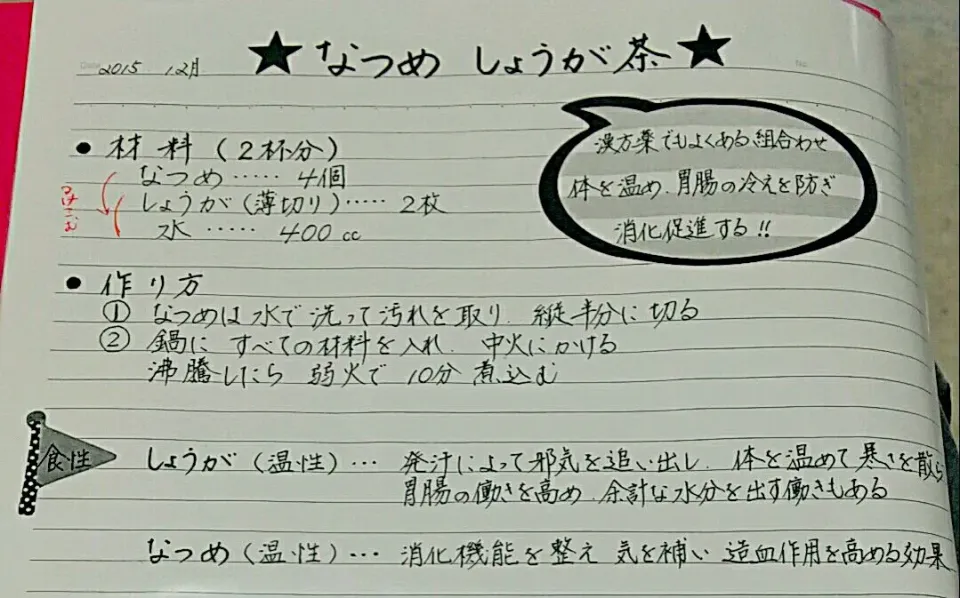 2015 12月
★ なつめ しょうが茶 ★
漢方薬でもよくある組合わせ
体を温め、胃腸の冷えを防ぎ
消化促進する!!
● 材料(2杯分)
なつめ ‥‥‥ 4個
しょうが(薄切り)‥‥‥ 2枚
水 ‥‥‥ 400cc
● 作り方
① なつめは水で洗って汚れを取り、縦半分に切る
② 鍋に すべての材料を入れ、中火にかける
沸騰したら 弱火で 10分 煮込む
食性
しょうが(温性)… 発汁によって邪気を追い出し、体を温めて寒さを散ら
胃腸の働きを高め、余計な水分を出す働きもある
なつめ(温性)… 消化機能を整え 気を補い 造血作用を高める効果